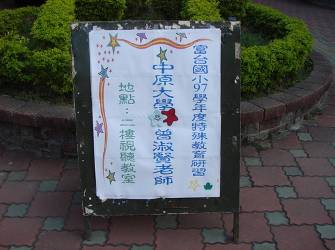 富台國小97學年度特殊教育研習
中原大學 曾淑賢老師
地點：二樓視聽教室